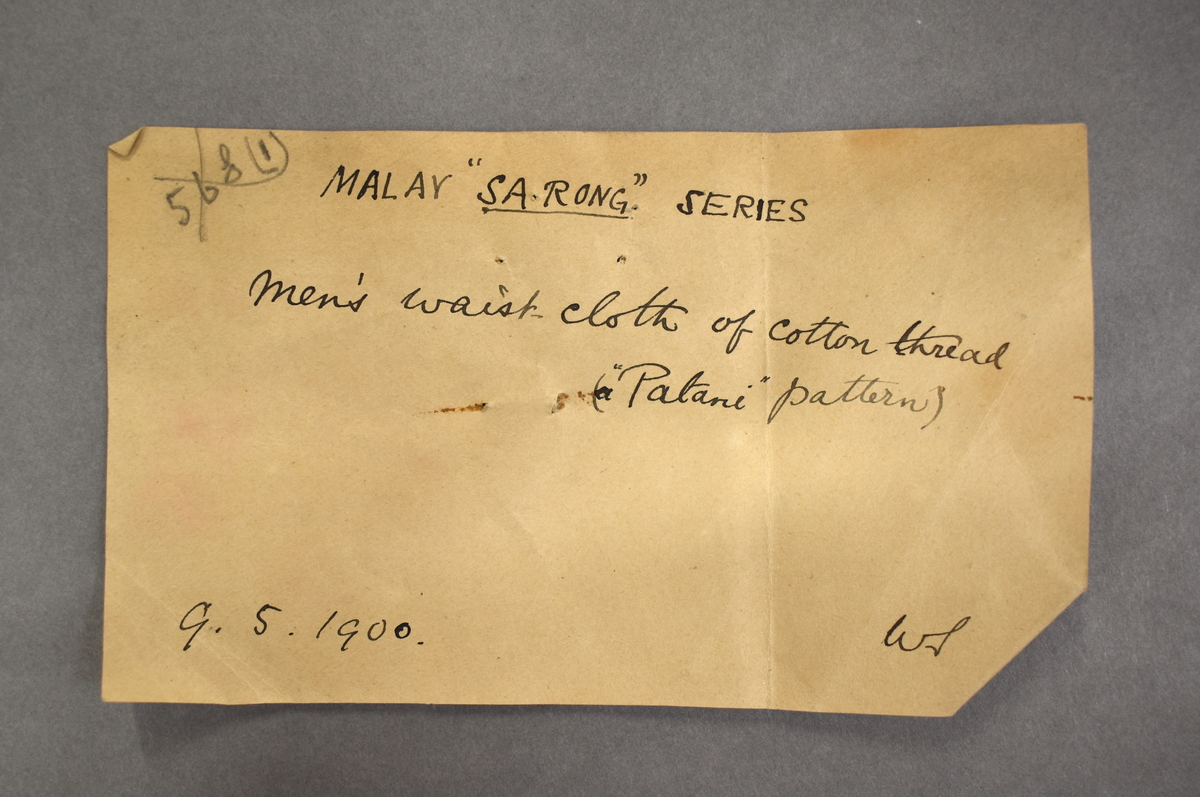 568 (1)
MALAY "SA·RONG." SERIES
Men's waist-cloth of cotton thread
("Patani" pattern)
9. 5. 1900.
WS